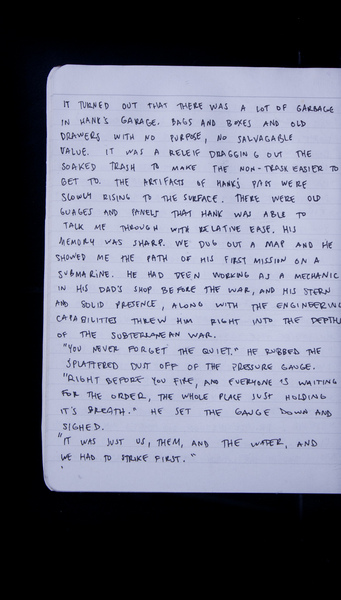 IT TURNED OUT THAT THERE WAS A LOT OF GARBAGE
IN HANK'S GARAGE. BAGS AND BOXES AND OLD
DRAWERS WITH NO PURPOSE, NO SALVAGABLE
VALUE. IT WAS A RELEIF DRAGGING OUT THE
SOAKED TRASH TO MAKE THE NON-TRASH EASIER TO
GET TO. THE ARTIFACTS OF HANK'S PAST WERE
SLOWLY RISING TO THE SURFACE. THERE WERE OLD
GUAGES AND PANELS THAT HANK WAS ABLE TO
TALK ME THROUGH WITH RELATIVE EASE. HIS
MEMORY WAS SHARP. WE DUG OUT A MAP AND HE
SHOWED ME THE PATH OF HIS FIRST MISSION ON A
SUBMARINE. HE HAD BEEN WORKING AS A MECHANIC
IN HIS DAD'S SHOP BEFORE THE WAR, AND HIS STERN
AND SOLID PRESENCE, ALONG WITH THE ENGINEERING
CAPABILITIES THREW HIM RIGHT INTO THE DEPTH
OF THE SUBTERRANEAN WAR.
"YOU NEVER FORGET THE QUIET." HE RUBBED THE
SPLATTERED DUST OFF OF THE PRESSURE GAUGE.
"RIGHT BEFORE YOU FIRE, AND EVERYONE IS WAITING
FOR THE ORDER, THE WHOLE PLACE JUST HOLDING
IT'S BREATH." HE SET THE GAUGE DOWN AND
SIGHED.
"IT WAS JUST US, THEM, AND THE WATER, AND
WE HAD TO STRIKE FIRST."